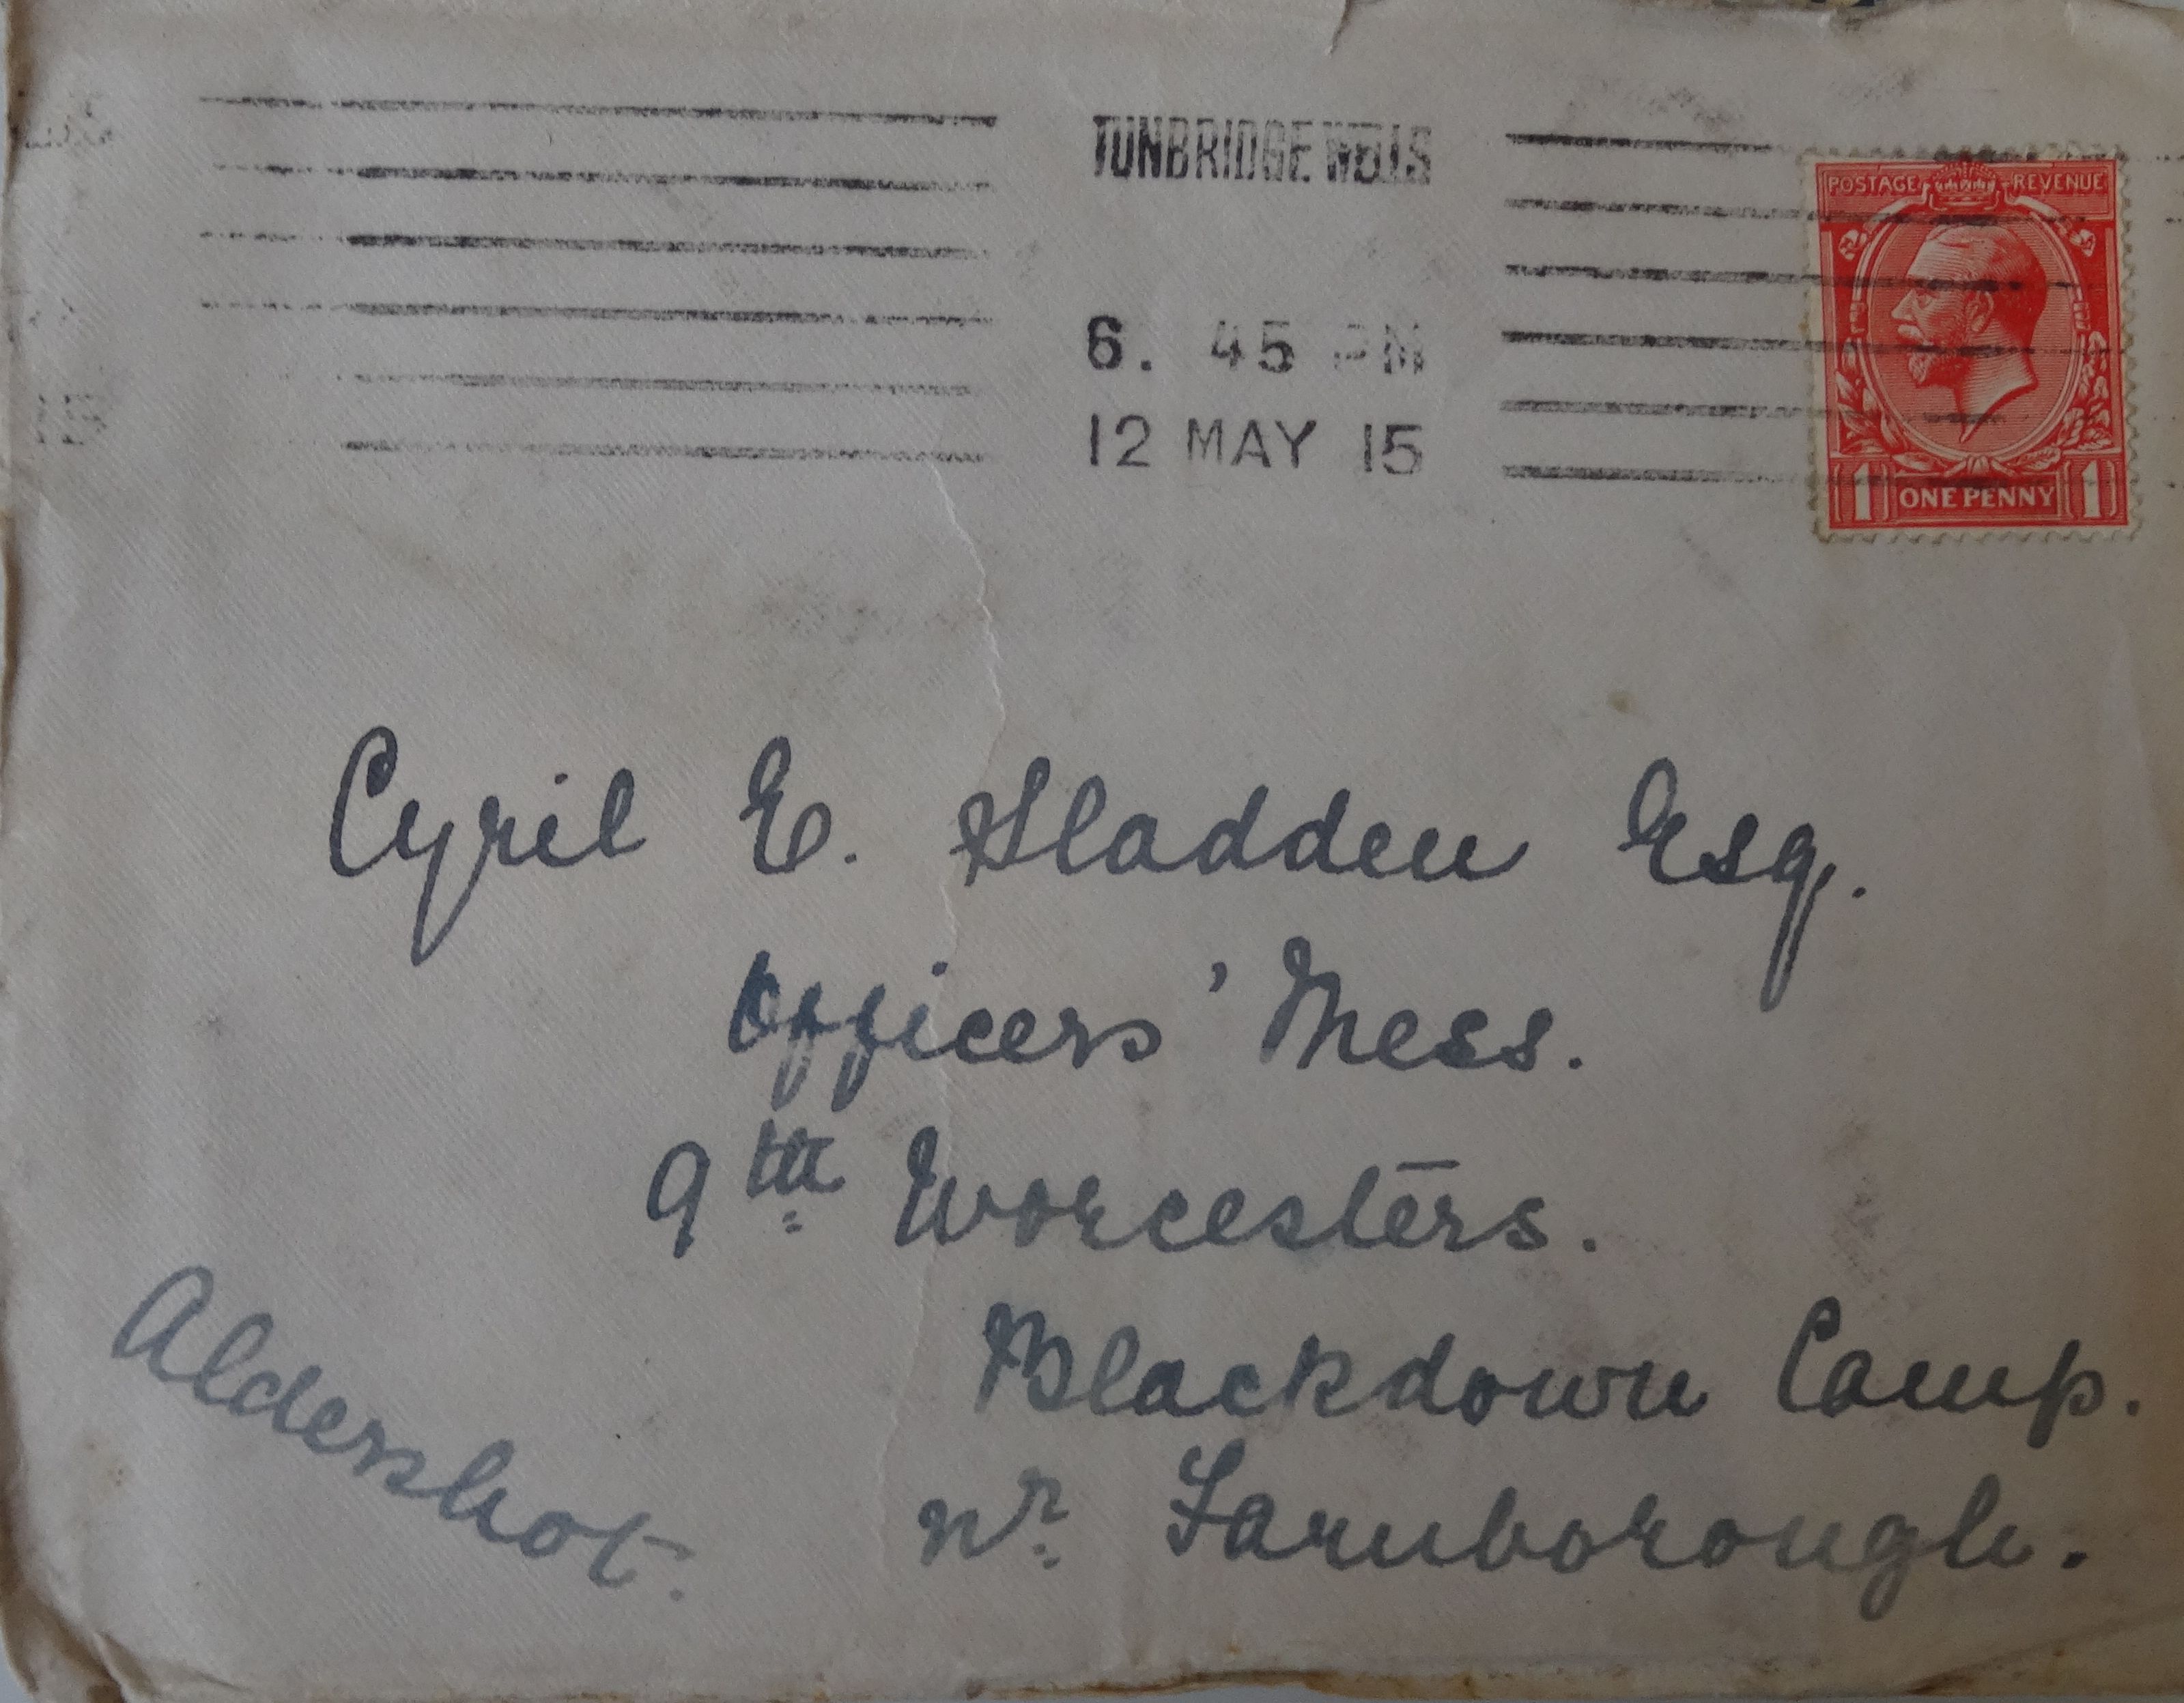 TUNBRIDGE WELLS
6. 45 PM
12 MAY 15
POSTAGE REVENUE
1 ONE PENNY 1
Cyril E. Sladden Esq.
Officers' Mess.
9th Worcesters.
Blackdown Camp.
nr Farnborough.
Aldershot.